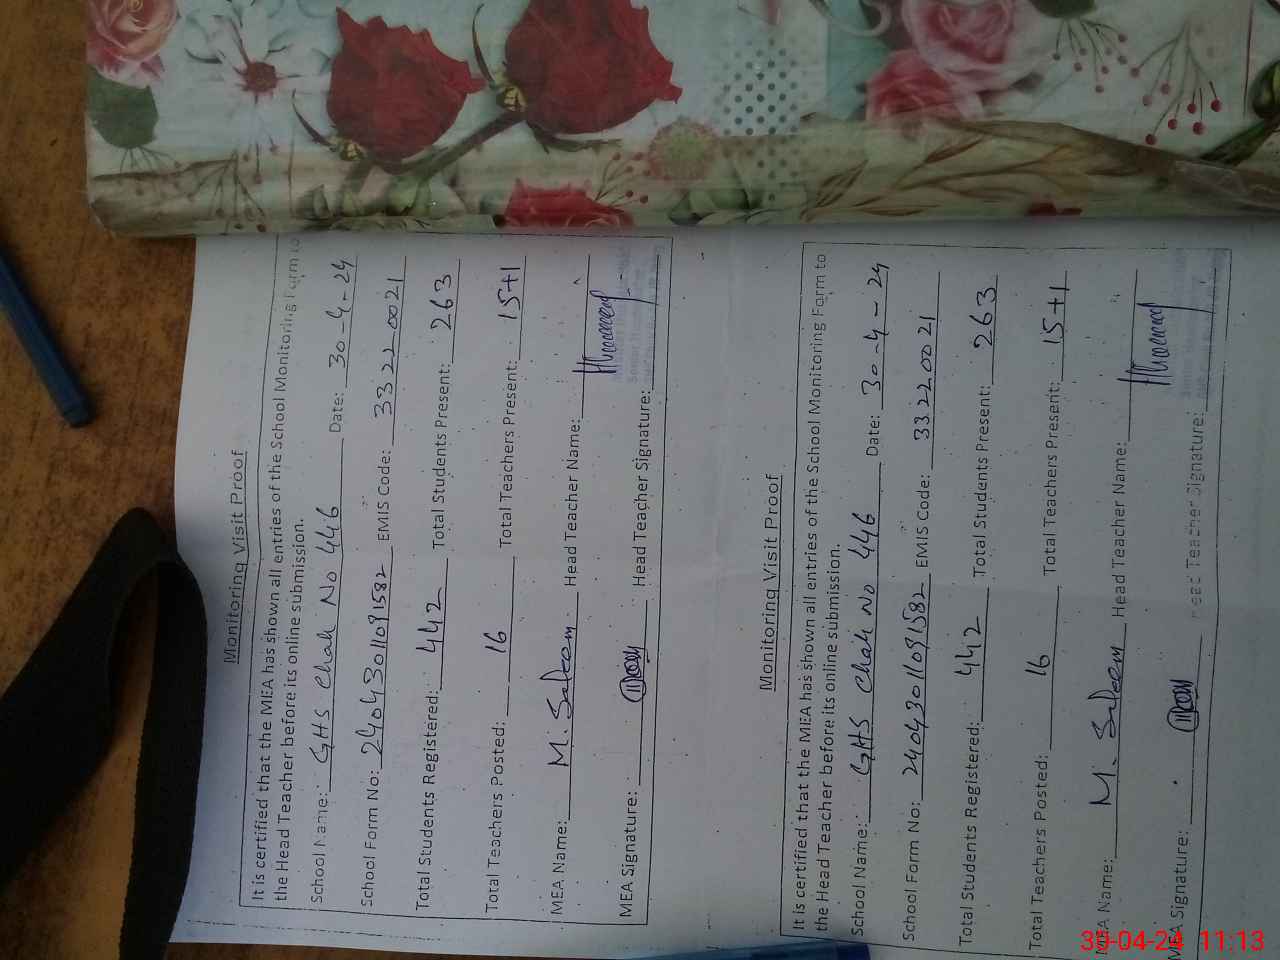 Monitoring Visit Proof
It is certified that the MEA has shown all entries of the School Monitoring Form to
the Head Teacher before its online submission.
School Name: GHS Chak No 446 Date: 30-4-24
School Form No: 24043011091582 EMIS Code: 33220021
Total Students Registered: 442 Total Students Present: 263
Total Teachers Posted: 16 Total Teachers Present: 15+1
MEA Name: M. Saleem Head Teacher Name:
MEA Signature: Head Teacher Signature:
Monitoring Visit Proof
It is certified that the MEA has shown all entries of the School Monitoring Form to
the Head Teacher before its online submission.
School Name: GHS Chak No 446 Date: 30-4-24
School Form No: 24043011091582 EMIS Code: 33220021
Total Students Registered: 442 Total Students Present: 263
Total Teachers Posted: 16 Total Teachers Present: 15+1
MEA Name: M. Saleem Head Teacher Name:
MEA Signature: Head Teacher Signature:
30-04-24 11:13